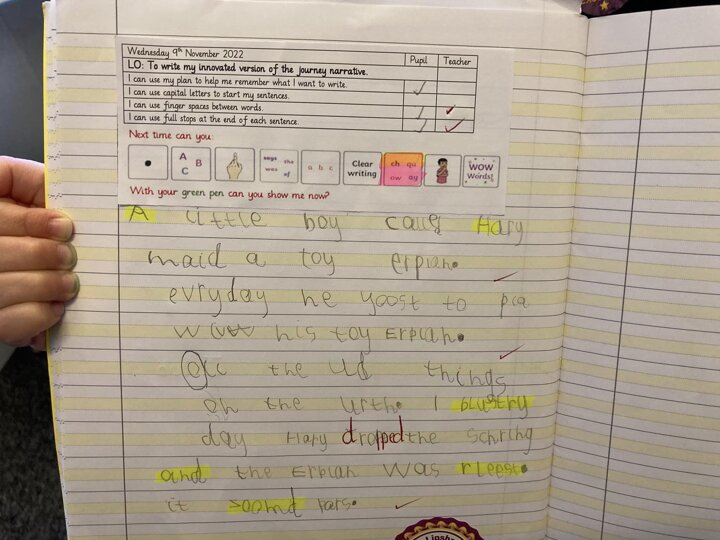 Wednesday 9th November 2022
Pupil Teacher
LO: To write my innovated version of the journey narrative.
I can use my plan to help me remember what I want to write.
I can use capital letters to start my sentences.
I can use finger spaces between words.
I can use full stops at the end of each sentence.
Next time can you:
A B C
says the was of
a b c
Clear writing
ch qu ow ay
WOW Words!
With your green pen can you show me now?
A little boy Hary
maid a toy erplan.
evryday he yoost to
his toy Erplan.
the things
on the urth. I blustry
day Hary dropped the schring
and the Erplan was rleest.
it